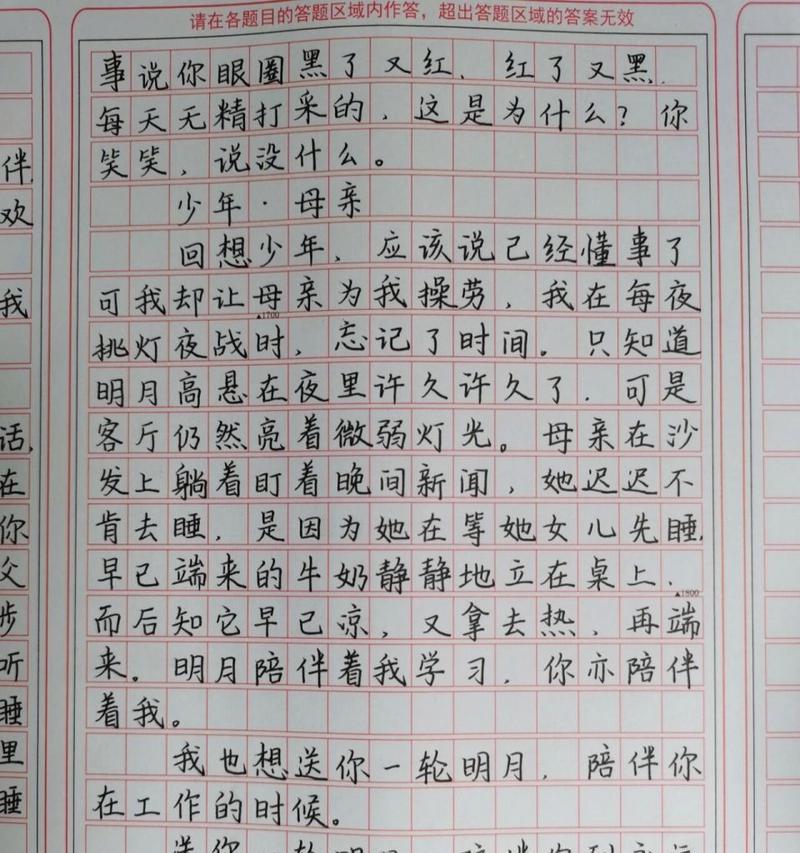 请在各题目的答题区域内作答，超出答题区域的答案无效
事说你眼圈黑了又红、红了又黑，
每天无精打采的，这是为什么？你
笑笑，说没什么。
少年·母亲
回想少年，应该说已经懂事了
可我却让母亲为我操劳，我在每夜
▲1700
挑灯夜战时，忘记了时间。只知道
明月高悬在夜里许久许久了，可是
客厅仍然亮着微弱灯光。母亲在沙
发上躺着盯着晚间新闻，她迟迟不
肯去睡，是因为她在等她女儿先睡，
早已端来的牛奶静静地立在桌上，
▲1800
而后知它早已凉，又拿去热，再端
来。明月陪伴着我学习，你亦陪伴
着我。
我也想送你一轮明月，陪伴你
在工作的时候。
伴，
欢
我
话，
在
你
父
步
听
睡
里
睡